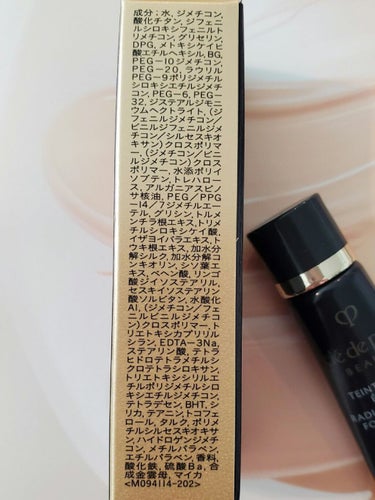 成分；水, ジメチコン,
酸化チタン, ジフェニ
ルシロキシフェニルト
リメチコン, グリセリン,
DPG, メトキシケイヒ
酸エチルヘキシル, BG,
PEG-10ジメチコン,
PEG-20, ラウリル
PEG-9ポリジメチル
シロキシエチルジメチ
コン, PEG-6, PEG-
32, ジステアルジモニ
ウムヘクトライト, (ジ
フェニルジメチコン/
ビニルジフェニルジメ
チコン/シルセスキオ
キサン)クロスポリマ
ー, (ジメチコン/ビニ
ルジメチコン)クロス
ポリマー, 水添ポリイ
ソブテン, トレハロー
ス, アルガニアスピノ
サ核油, PEG/PPG
-14/7ジメチルエー
テル, グリシン, トルメ
ンチラ根エキス, トリメ
チルシロキシケイ酸,
イザヨイバラエキス, ト
ウキ根エキス, 加水分
解シルク, 加水分解コ
ンキオリン, シソ葉エ
キス, ベヘン酸, リンゴ
酸ジイソステアリル,
セスキイソステアリン
酸ソルビタン, 水酸化
Al, (ジメチコン/フェ
ニルビニルジメチコ
ン)クロスポリマー, ト
リエトキシカプリリル
シラン, EDTA-3Na,
ステアリン酸, テトラ
ヒドロテトラメチルシ
クロテトラシロキサン,
トリエトキシシリルエ
チルポリジメチルシロ
キシエチルジメチコン,
テトラデセン, BHT, シ
リカ, テアニン, トコフェロ
ール, タルク, ポリメ
チルシルセスキオキサ
ン, ハイドロゲンジメチ
コン, メチルパラベン,
エチルパラベン, 香料,
酸化鉄, 硫酸Ba, 合
成金雲母, マイカ
<M094114-202>
BEAU
TEINT
RADIAN
FO